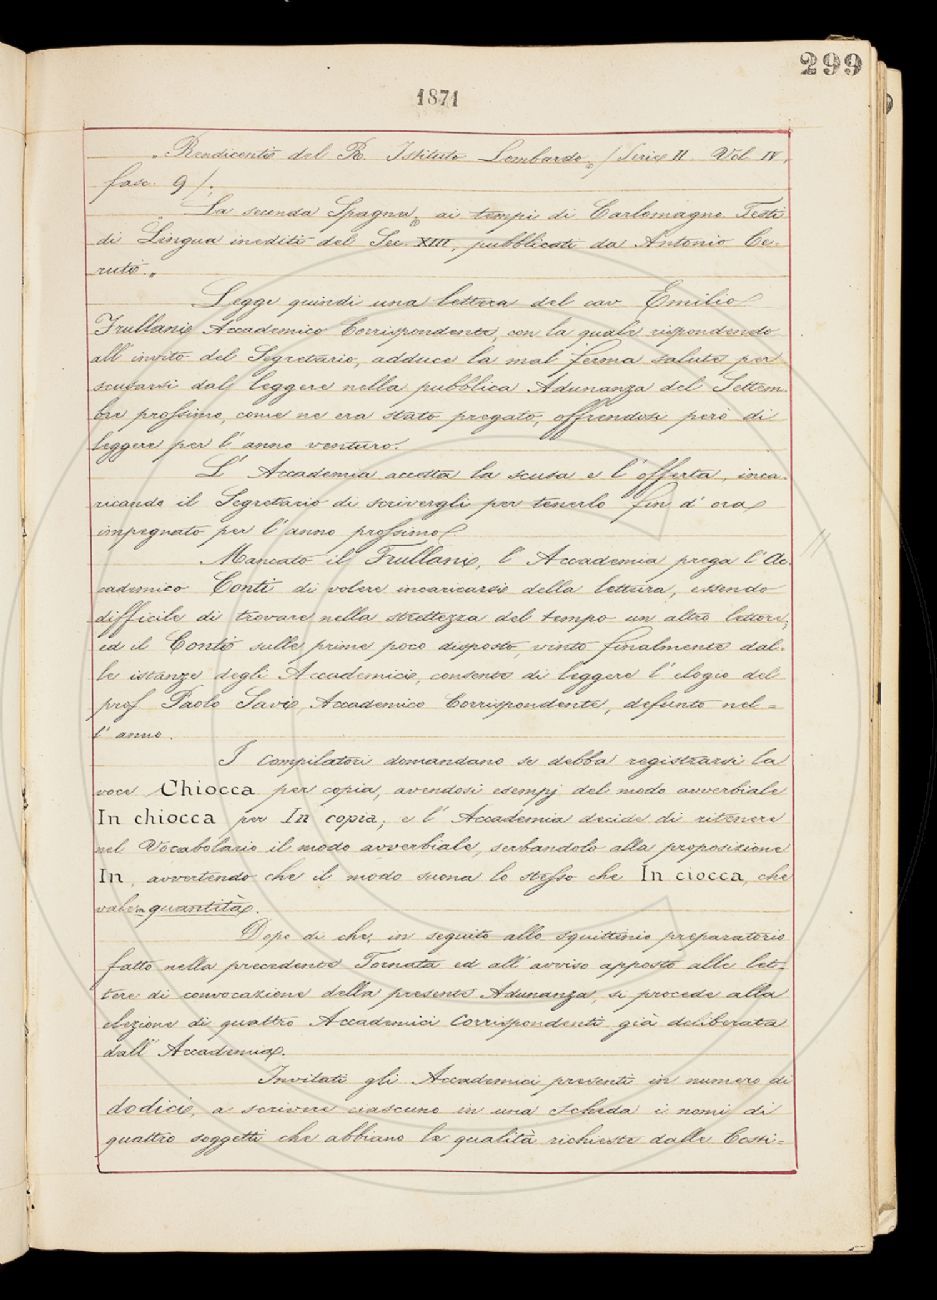 299
1871
„Rendiconti del R. Istituto Lombardo„ (Serie II. Vol IV.
fasc. 9).
„La seconda Spagna„ ai tempi di Carlomagno Testi
di Lingua inediti del Sec. XIII, pubblicati da Antonio Ce-
ruti.„
Legge quindi una lettera del cav Emilio
Frullani Accademico Corrispondente, con la quale rispondendo
all'invito del Segretario, adduce la mal ferma salute per
scusarsi dal leggere nella pubblica Adunanza del Settem-
bre prossimo, come ne era stato pregato, offrendosi però di
leggere per l'anno venturo.
L'Accademia accetta la scusa e l'offerta, inca-
ricando il Segretario di scrivergli per tenerlo fin d'ora
impegnato per l'anno prossimo
Mancato il Frullani, l'Accademia prega l'Ac-
cademico Conti di volere incaricarsi della lettura, essendo
difficile di trovare nella strettezza del tempo un altro lettore,
ed il Conti sulle prime poco disposto, vinto finalmente dal-
le istanze degli Accademici, consente di leggere l'elogio del
prof Paolo Savi, Accademico Corrispondente, defunto nel=
l'anno.
I Compilatori domandano se debba registrarsi la
voce Chiocca per copia, avendosi esempj del modo avverbiale
In chiocca per In copia; e l'Accademia decide di ritenere
nel Vocabolario il modo avverbiale, serbandolo alla proposizione
In, avvertendo che il modo suona lo stesso che In ciocca, che
vale in quantità.
Dopo di che, in seguito allo squittinio preparatorio
fatto nella precedente Tornata ed all'avviso apposto alle let-
tere di convocazione della presente Adunanza, si procede alla
elezione di quattro Accademici Corrispondenti già deliberata
dall'Accademia.
Invitati gli Accademici presenti in numero di
dodici, a scrivere ciascuno in una scheda i nomi di
quattro soggetti che abbiano le qualità richieste dalle Costi=